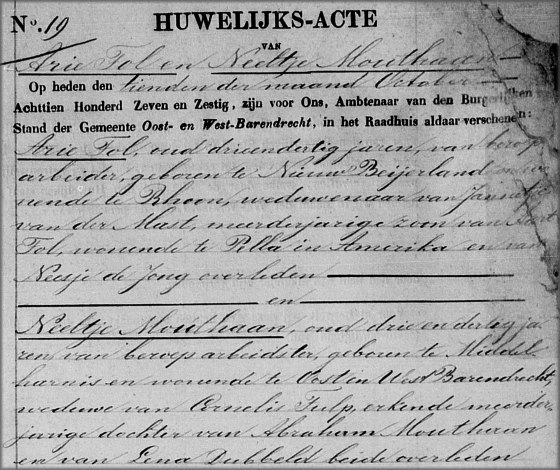 No. 19
HUWELIJKS-ACTE
VAN
Arie Tol en Neeltje Mouthaan
Op heden den tienden der maand October
Achttien Honderd Zeven en Zestig, zijn voor Ons, Ambtenaar van den Burgerlijken
Stand der Gemeente Oost- en West-Barendrecht, in het Raadhuis aldaar verschenen:
Arie Tol, oud drieendertig jaren, van beroep
arbeider, geboren te Nieuw Beijerland en wo-
nende te Rhoon, weduwenaar van Jannetje
van der Mast, meerderjarige zoon van
Tol, wonende te Pella in Amerika en van
Neesje de Jong overleden
en
Neeltje Mouthaan, oud drie en dertig ja
ren, van beroep arbeidster, geboren te Middel
harnis en wonende te Oost en West Barendrecht
weduwe van Cornelis Tulp, erkende meerder
jarige dochter van Abraham Mouthaan
en van Lena Dubbeld beide overleden